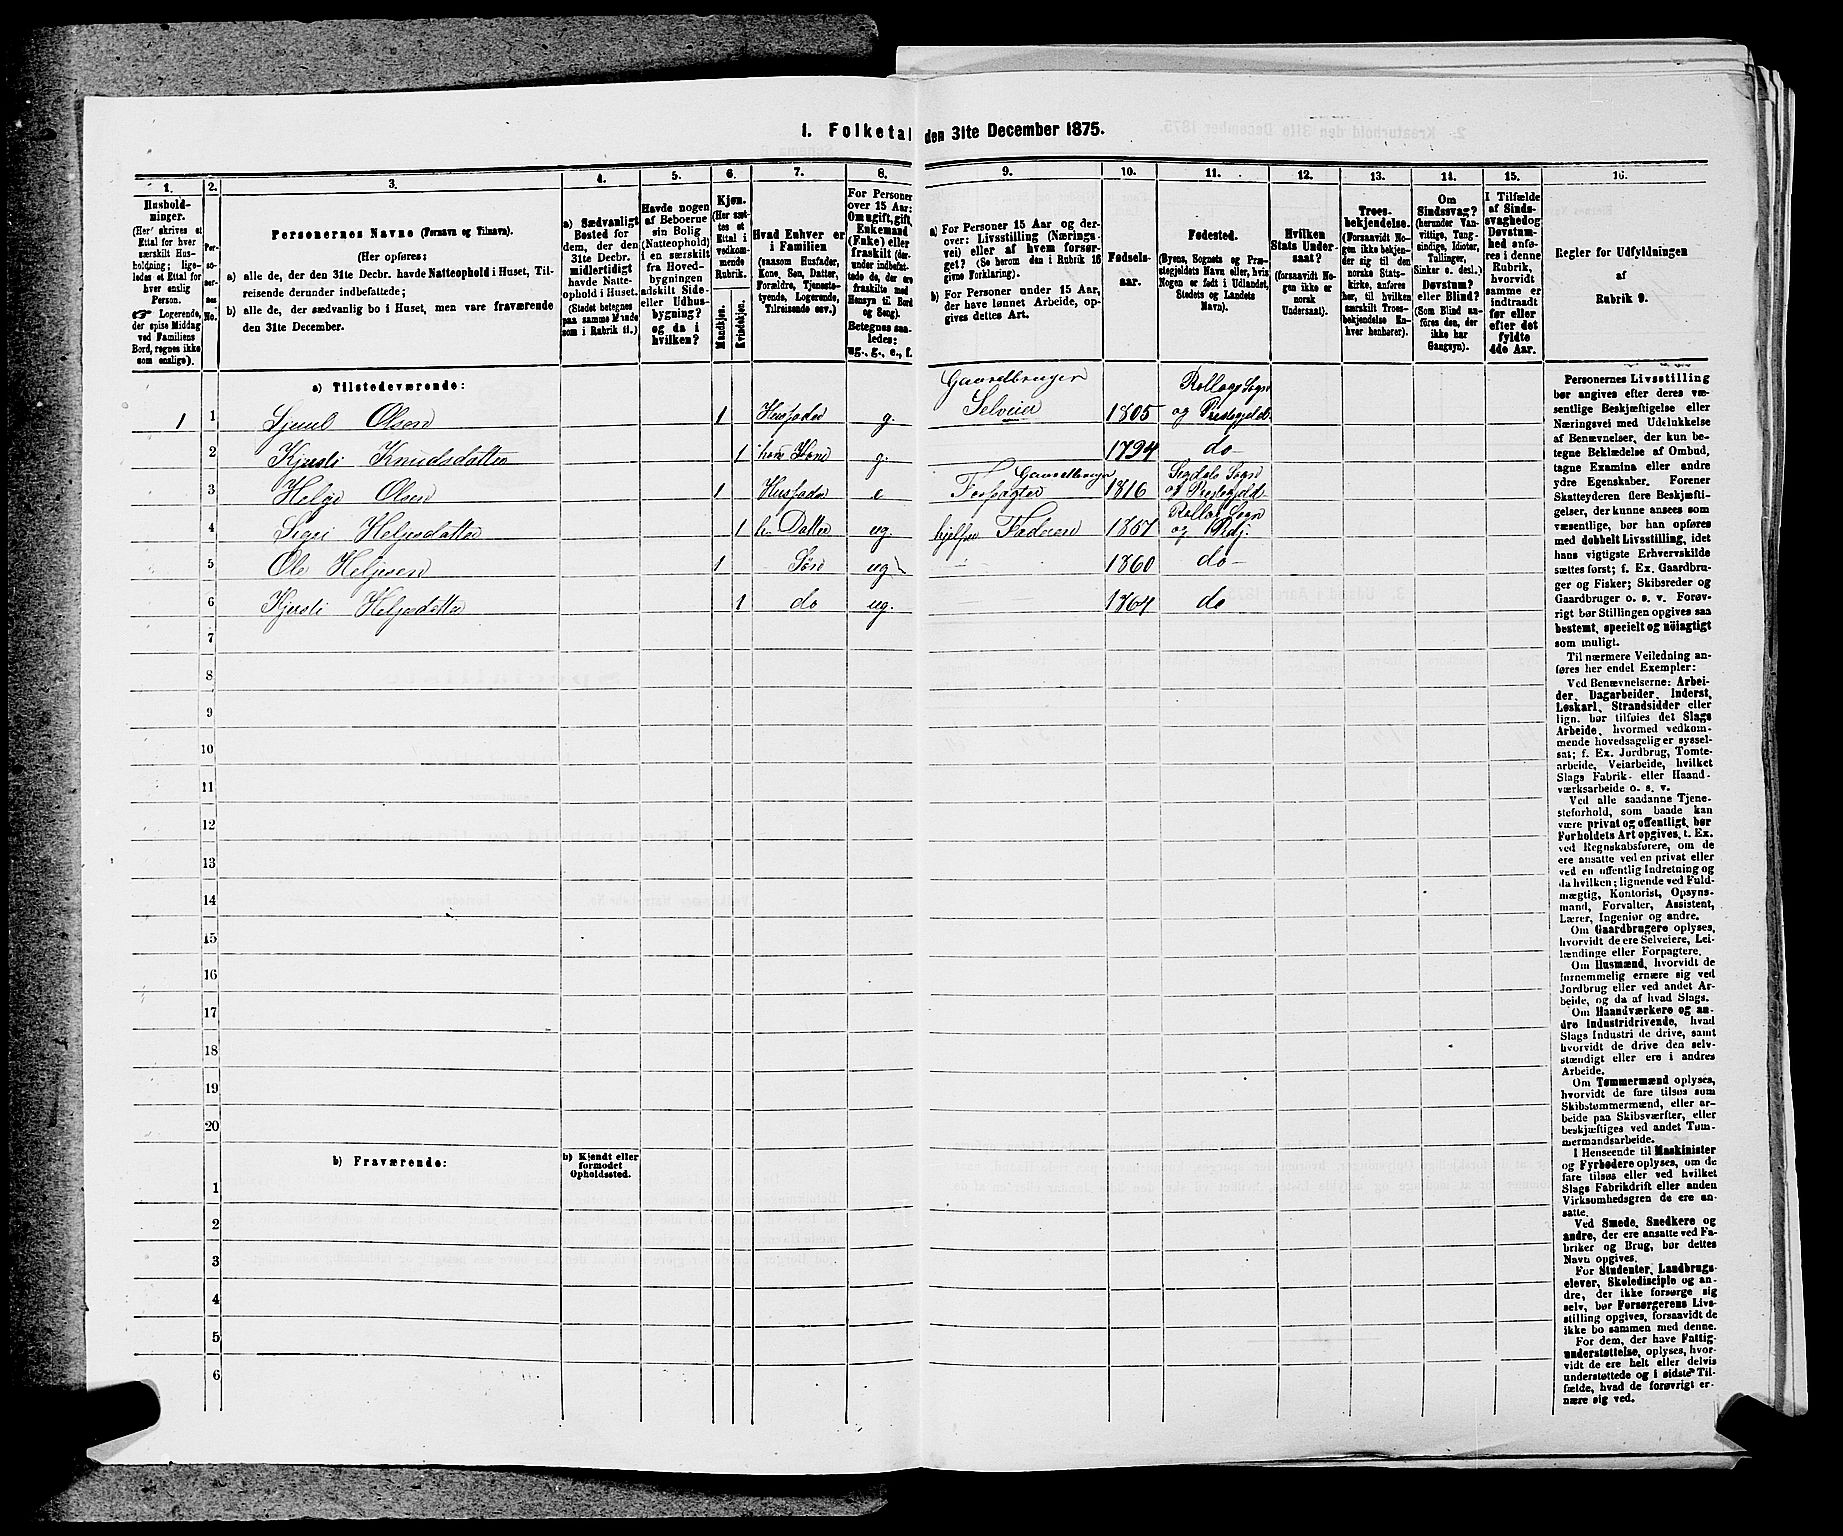 1. Folketal den 31te December 1875.
1.
Hushold-
ninger.
(Her skrives et
Ettal for hver
særskilt Hus-
holdning; lige-
ledes et Ettal for
hver enslig
Person.
Logerende,
der spise Middag
ved Familiens
Bord, regnes ikke
som enslige).
2.
Personernes No.
3.
Personernes Navne (Fornavn og Tilnavn).
(Her opføres:
a) alle de, der den 31te Decbr. havde Natteophold i Huset, Til-
reisende derunder indbefattede;
b) alle de, der sædvanlig bo i Huset, men vare fraværende
den 31te December.
4.
a) Sædvanligt
Bosted for
dem, der den
31te Decbr.
midlertidigt
havde Natte-
ophold i Huset.
(Stedet betegnes
paa samme Maade
som i Rubrik 11.)
5.
Havde nogen
af Beboerne
sin Bolig
(Natteophold)
i en særskilt
fra Hoved-
bygningen
adskilt Side-
eller Udhus-
bygning?
og da i
hvilken?
6.
Kjøn.
(Her sæt-
tes et
Ettal i
vedkom-
mende
Rubrik.
Mandkjøn.
Kvindekjøn.
7.
Hvad Enhver er
i Familien
(saasom Husfader,
Kone, Søn, Datter,
Forældre, Tjeneste-
tyende, Logerende,
Tilreisende osv.)
8.
For Personer
over 15 Aar:
Om ugift, gift,
Enkemand
(Enke) eller
fraskilt (der-
under indbefat-
tede de, der ere
fraskilte med
Hensyn til Bord
og Seng).
Betegnes saa-
ledes:
ug., g., e., f.
9.
a) For Personer 15 Aar og der-
over: Livsstilling (Nærings-
vei) eller af hvem forsør-
get? (Se herom den i Rubrik 16
givne Forklaring).
b) For Personer under 15 Aar,
der have lønnet Arbeide, op-
gives dettes Art.
10.
Fødsels-
aar.
11.
Fødested.
(Byens, Sognets og Præ-
stegjeldets Navn eller, hvis
Nogen er født i Udlandet,
Stedets og Landets
Navn).
12.
Hvilken
Stats Under-
saat?
(forsaavidt No-
gen ikke er
norsk
Undersaat).
13.
Troes-
bekjendelse.
(Forsaavidt No-
gen ikke bekjen-
der sig til den
norske Stats-
kirke, anføres
her, til hvilken
særskilt Troes-
bekjendelse En-
hver henhører).
14.
Om
Sindssvag?
(herunder Van-
vittige, Tung-
sindige, Idioter,
Tullinger,
Sinker o. desl.)
Døvstum?
eller Blind?
(Som Blind an-
føres den, der
ikke har
Gangsyn).
15.
I Tilfælde
af Sinds-
svaghed og
Døvstum-
hed anfø-
res i denne
Rubrik,
hvorvidt
samme er
indtraadt
før eller
efter det
fyldte
4de Aar.
16.
Regler for Udfyldningen
af
Rubrik 9.
a) Tilstedeværende:
Gaardbruger Rollags Sogn
1 1 Olsen 1 Husfader g. Selveier 1805 og Prestegjeld
2 Kjersti Knudsdatter 1 hans Kone g. 1794 do
Gaardbruger Sigdals Sogn
3 Helge Olsen 1 Husfader e Forpagter 1816 og Prestegjeld
Rollags Sogn
4 Sigri Helgesdatter 1 h. Datter ug. hjelper Faderen 1857 og Pldj.
5 Ole Helgesen 1 Søn ug 1860 do
6 Kjersti Helgesdatter 1 do ug. 1864 do
7
8
9
10
11
12
13
14
15
16
17
18
19
20
b) Fraværende:
b) Kjendt eller
formodet
Opholdssted.
1
2
3
4
5
6
Personernes Livsstilling
bør angives efter deres væ-
sentlige Beskjæftigelse eller
Næringsvei med Udelukkelse
af Benævnelser, der kun be-
tegne Beklædelse af Ombud,
tagne Examina eller andre
ydre Egenskaber. Forener
Skatteyderen flere Beskjæfti-
gelser, der kunne ansees som
væsentlige, bør han opføres
med dobbelt Livsstilling, idet
hans vigtigste Erhvervskilde
sættes først; f. Ex. Gaardbru-
ger og Fisker; Skibsreder og
Gaardbruger o. s. v. Forøv-
rigt bør Stillingen opgives saa
bestemt, specielt og nøiagtigt
som muligt.
Til nærmere Veiledning an-
føres her endel Exempler:
Ved Benævnelserne: Arbei-
der, Dagarbeider, Inderst,
Løskarl, Strandsidder eller
lign. bør tilføies det Slags
Arbeide, hvormed vedkom-
mende hovedsagelig er syssel-
sat; f. Ex. Jordbrug, Tomte-
arbeide, Veiarbeide, hvilket
Slags Fabrik- eller Haand-
værksarbeide o. s. v.
Ved alle saadanne Tjene-
steforhold, som baade kan
være privat og offentligt, bør
Forholdets Art opgives, t. Ex.
ved Regnskabsførere, om de
ere ansatte ved en privat eller
ved en offentlig Indretning og
da hvilken; lignende ved Fuld-
mægtig, Kontorist, Opsyns-
mand, Forvalter, Assistent,
Lærer, Ingeniør og andre.
Om Gaardbrugere oplyses,
hvorvidt de ere Selveiere, Lei-
lændinge eller Forpagtere.
Om Husmænd, hvorvidt de
fornemmelig ernære sig ved
Jordbrug eller ved andet Ar-
beide, og da af hvad Slags.
Om Haandværkere og an-
dre Industridrivende, hvad
Slags Industri de drive, samt
hvorvidt de drive den selv-
stændigt eller ere i andres
Arbeide.
Om Tømmermænd oplyses,
hvorvidt de fare tilsøs som
Skibstømmermænd, eller ar-
beide paa Skibsværfter, eller
beskjæftiges ved andet Tøm-
mermandsarbeide.
I Henseende til Maskinister
og Fyrbødere oplyses, om de
fare tilsøs eller ved hvilket
Slags Fabrikdrift eller anden
Virksomhedsgren de ere an-
satte.
Ved Smede, Snedkere og
andre, der ere ansatte ved Fa-
briker og Brug, bør dettes
Navn opgives.
For Studenter, Landbrugs-
elever, Skoledisciple og an-
dre, der ikke forsørge sig
selv, bør Forsørgerens Livs-
stilling opgives, forsaavidt de
ikke bo sammen med denne.
For dem, der have Fattig-
understøttelse, oplyses, hvor-
vidt de ere helt eller delvis
understøttede og i sidste Til-
fælde, hvad de forøvrigt er-
nære sig ved.